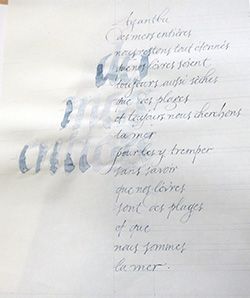 Agantha
des mers entières
nous restons tout étonnés
que nos lèvres soient
toujours aussi sèches
que des plages
et toujours nous cherchons
la mer
pour les y tremper
sans savoir
que nos lèvres
sont des plages
et que
nous sommes
la mer.
des
mers
entières